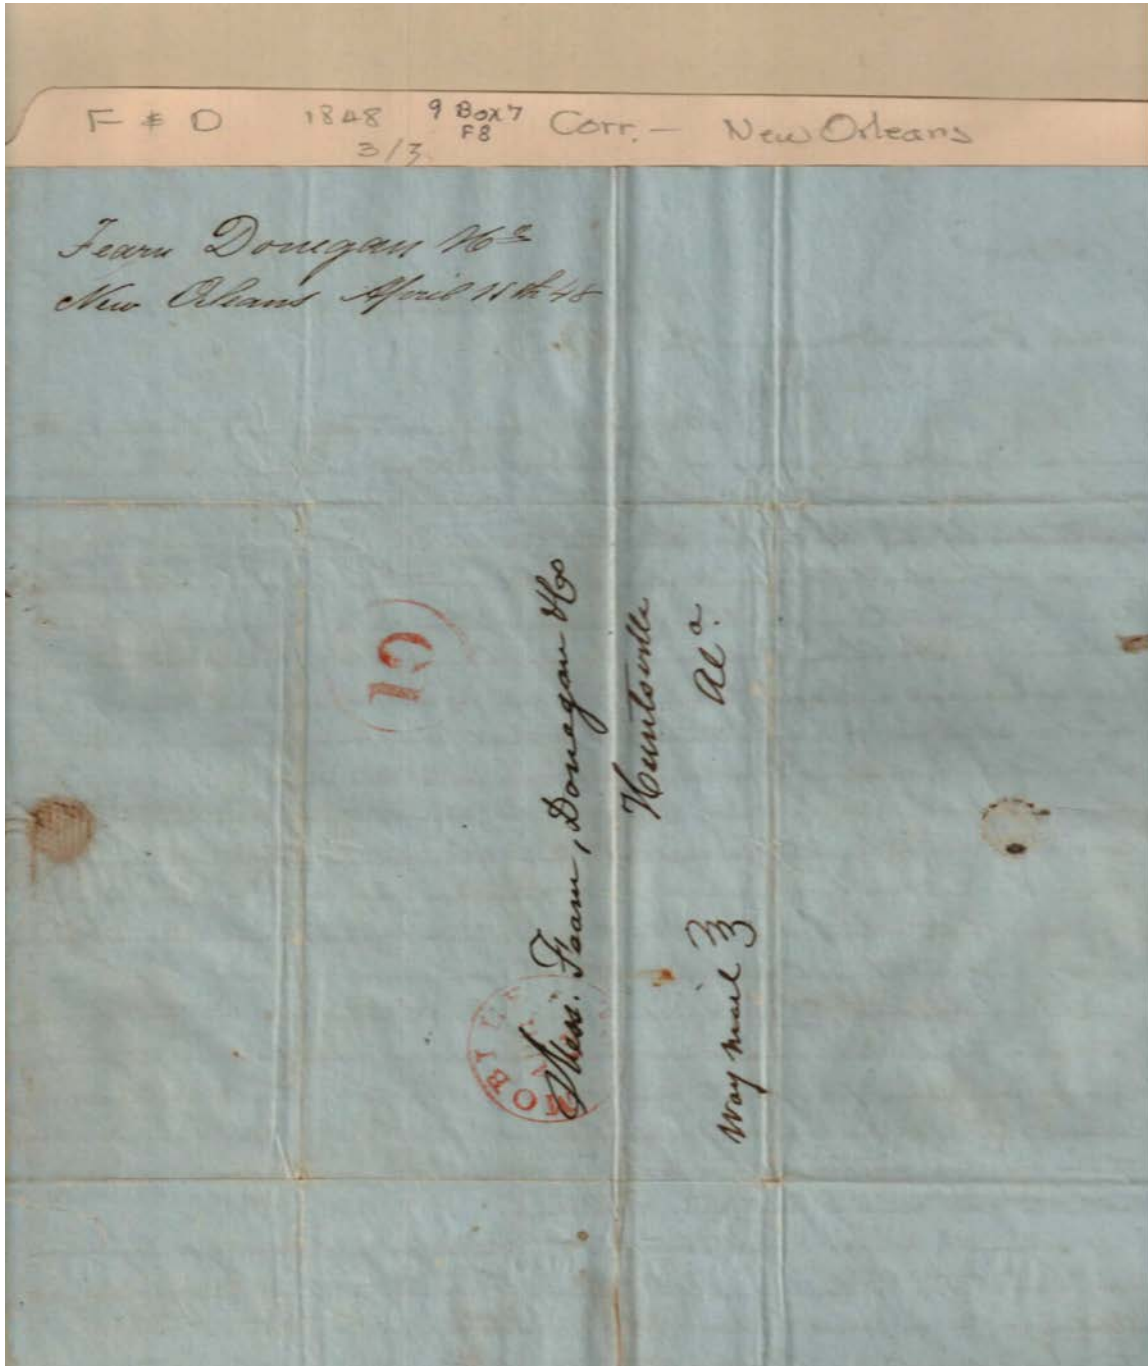 F & D 1848 9 Box 7 Corr. — New Orleans
3/3 F8
Fearn Donegan & Co
New Orleans April 15th 48
10
Mess. Fearn, Donegan & Co
Huntsville
Ala.
Way mail
MOBILE